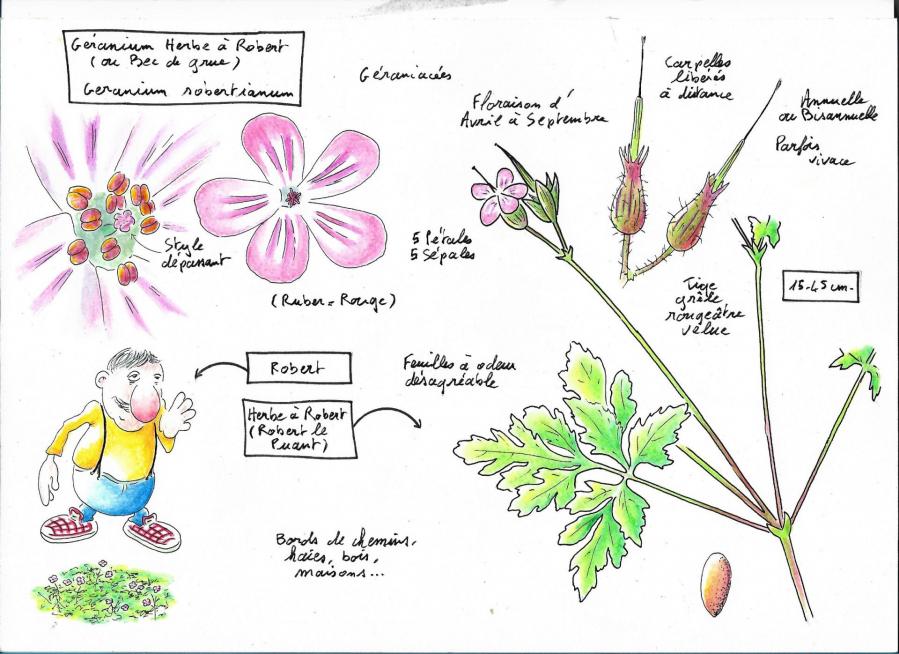 Géranium Herbe à Robert
(ou Bec de grue)
Geranium robertianum
Géraniacées
Floraison d'
Avril à Septembre
Carpelles
libérés
à distance
Annuelle
ou Bisannuelle
Parfois
vivace
Style
dépassant
5 Pétales
5 Sépales
(Ruber = Rouge)
Tige
grêle
rougeâtre
velue
15-45 cm-
Robert
Feuilles à odeur
désagréable
Herbe à Robert
(Robert le
Puant)
Bords de chemins,
haies, bois,
maisons...